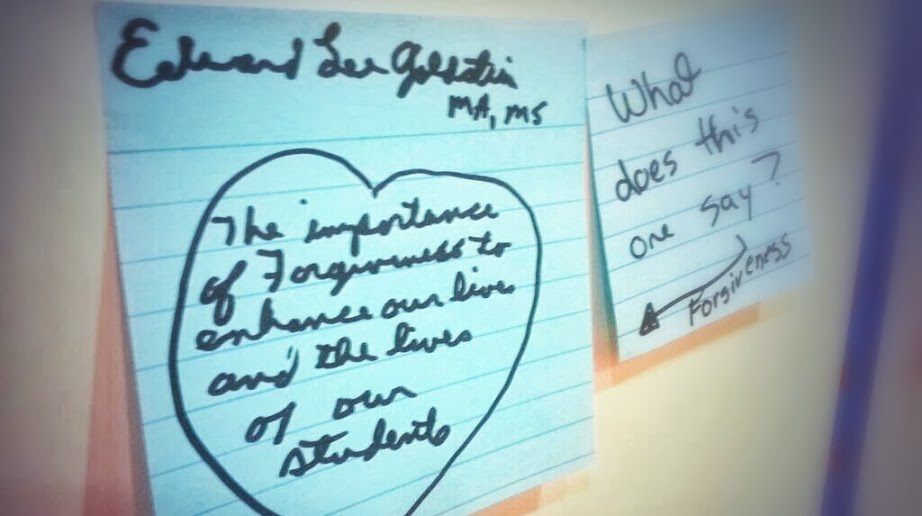 Edward Lee Goldstein
MA, MS
The importance
of Forgiveness to
enhance our lives
and the lives
of our
students
What
does this
one say?
Forgiveness